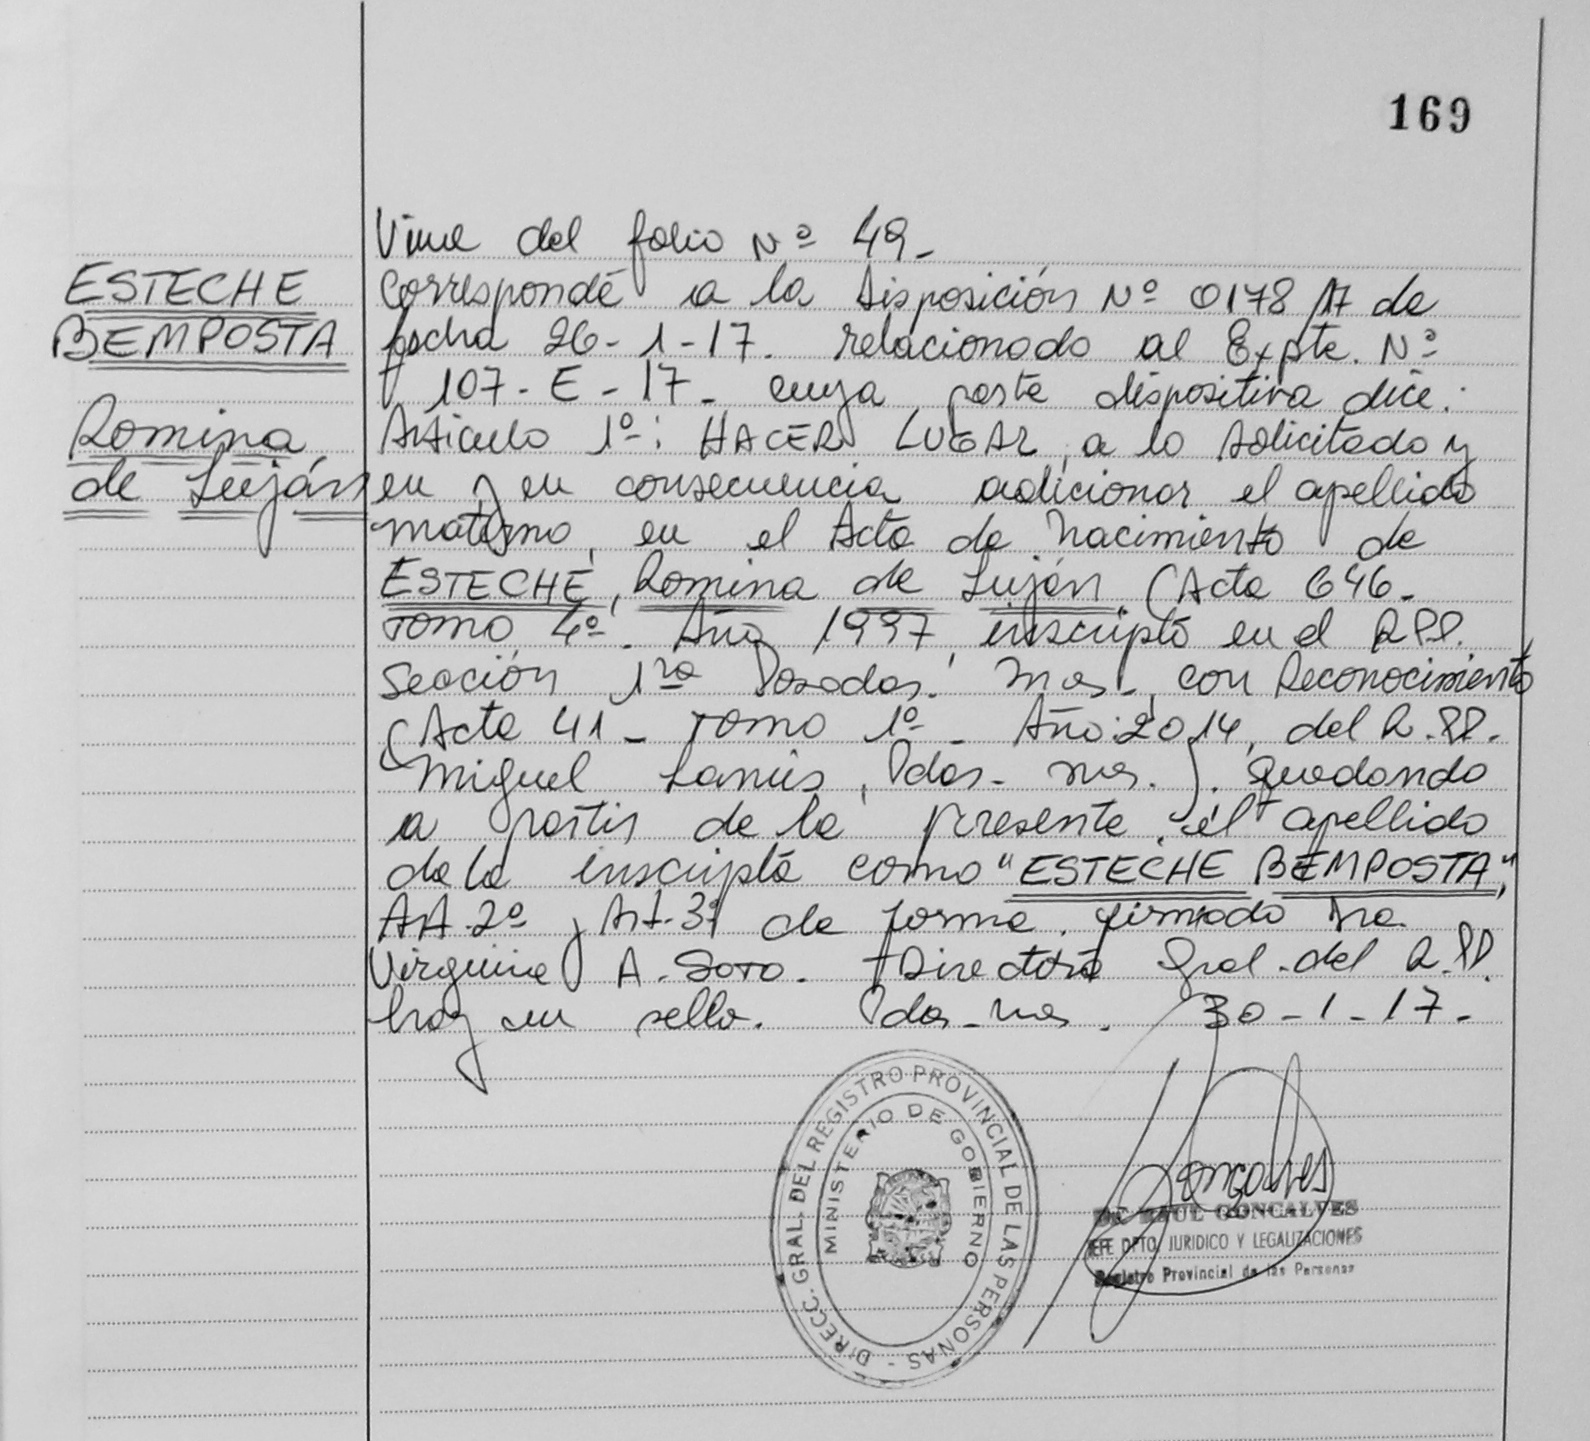 169
ESTECHE
BEMPOSTA
Romina
de Luján
Viene del folio Nº 49_
Corresponde a la Disposición Nº 0178/17 de
fecha 26-1-17. relacionado al Expte. Nº
107-E-17_ cuya parte dispositiva dice:
Artículo 1º: HACER LUGAR, a lo solicitado y
en y en consecuencia adicionar el apellido
materno, en el Acta de Nacimiento de
ESTECHE, Romina de Luján. (Acta 646_
Tomo 4º_ Año 1997, inscripta en el RPP.
Sección 1ra Posadas. Mnes_, con Reconocimiento
(Acta 41_ Tomo 1º_ Año:2014, del R.PP.
Miguel Lanús, Pdas_ Mnes.). quedando
a partir de la presente el apellido
de la inscripta como "ESTECHE BEMPOSTA",
Art. 2º y Art. 3º de forma. firmado Dra
Virginia A. Soto. Directora Gral. del R.PP.
hay un sello. Pdas_Mnes. 30-1-17.
DIRECC. GRAL. DEL REGISTRO PROVINCIAL DE LAS PERSONAS -
MINISTERIO DE GOBIERNO
Goncalves
RAUL GONCALVES
JEFE DPTO. JURIDICO Y LEGALIZACIONES
Registro Provincial de las Personas